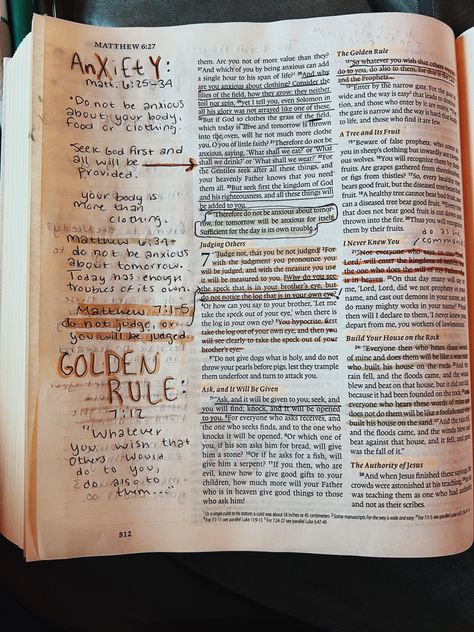 MATTHEW 6:27
AnXiEtY:
matt. 6:25-34
Do not be anxious
about your body,
food or clothing.
Seek God first and
all will be
Provided.
your body is
more than
clothing.
Matthew 6:34-
do not be anxious
about tomorrow.
Today has enough
troubles of its own.
Matthew 7:1-5
do not judge, or
you will be judged
GOLDEN
RULE:
7:12
"Whatever
you wish that
others would
do to you,
do also to
them...
812
them. Are you not of more value than they?
27And which of you by being anxious can add
a single hour to his span of life? 28And why
are you anxious about clothing? Consider the
lilies of the field, how they grow: they neither
toil nor spin, 29yet I tell you, even Solomon in
all his glory was not arrayed like one of these.
30But if God so clothes the grass of the field,
which today is alive and tomorrow is thrown
into the oven, will he not much more clothe
you, O you of little faith? 31Therefore do not be
anxious, saying, 'What shall we eat?' or 'What
shall we drink?' or 'What shall we wear?' 32For
the Gentiles seek after all these things, and
your heavenly Father knows that you need
them all. 33But seek first the kingdom of God
and his righteousness, and all these things will
be added to you.
34"Therefore do not be anxious about tomor-
row, for tomorrow will be anxious for itself.
Sufficient for the day is its own trouble.
Judging Others
7 "Judge not, that you be not judged. 2For
with the judgment you pronounce you
will be judged, and with the measure you use
it will be measured to you. 3Why do you see
the speck that is in your brother's eye, but
do not notice the log that is in your own eye?
4Or how can you say to your brother, 'Let me
take the speck out of your eye,' when there is
the log in your own eye? 5You hypocrite, first
take the log out of your own eye, and then you
will see clearly to take the speck out of your
brother's eye.
6"Do not give dogs what is holy, and do not
throw your pearls before pigs, lest they trample
them underfoot and turn to attack you.
Ask, and It Will Be Given
7"Ask, and it will be given to you; seek, and
you will find; knock, and it will be opened
to you. 8For everyone who asks receives, and
the one who seeks finds, and to the one who
knocks it will be opened. 9Or which one of
you, if his son asks him for bread, will give
him a stone? 10Or if he asks for a fish, will
give him a serpent? 11If you then, who are
evil, know how to give good gifts to your
children, how much more will your Father
who is in heaven give good things to those
who ask him!
The Golden Rule
12"So whatever you wish that others would
do to you, do also to them, for this is the Law
and the Prophets.
13"Enter by the narrow gate. For the gate is
wide and the way is easy that leads to destruc-
tion, and those who enter by it are many. 14For
the gate is narrow and the way is hard that leads
to life, and those who find it are few.
A Tree and Its Fruit
15"Beware of false prophets, who come to
you in sheep's clothing but inwardly are raven-
ous wolves. 16You will recognize them by their
fruits. Are grapes gathered from thornbushes,
or figs from thistles? 17So, every healthy tree
bears good fruit, but the diseased tree bears bad
fruit. 18A healthy tree cannot bear bad fruit, nor
can a diseased tree bear good fruit. 19Every tree
that does not bear good fruit is cut down and
thrown into the fire. 20Thus you will recognize
them by their fruits.
do as he
commands
I Never Knew You
21"Not everyone who says to me, 'Lord,
Lord,' will enter the kingdom of heaven, but
the one who does the will of my Father who
is in heaven. 22On that day many will say to
me, 'Lord, Lord, did we not prophesy in your
name, and cast out demons in your name, and
do many mighty works in your name?' 23And
then will I declare to them, 'I never knew you;
depart from me, you workers of lawlessness.'
Build Your House on the Rock
24"Everyone then who hears these words of
mine and does them will be like a wise man
who built his house on the rock. 25And the
rain fell, and the floods came, and the winds
blew and beat on that house, but it did not fall,
because it had been founded on the rock. 26And
everyone who hears these words of mine and
does not do them will be like a foolish man who
built his house on the sand. 27And the rain fell,
and the floods came, and the winds blew and
beat against that house, and it fell, and great
was the fall of it."
The Authority of Jesus
28And when Jesus finished these sayings, the
crowds were astonished at his teaching, 29for he
was teaching them as one who had authority,
and not as their scribes.